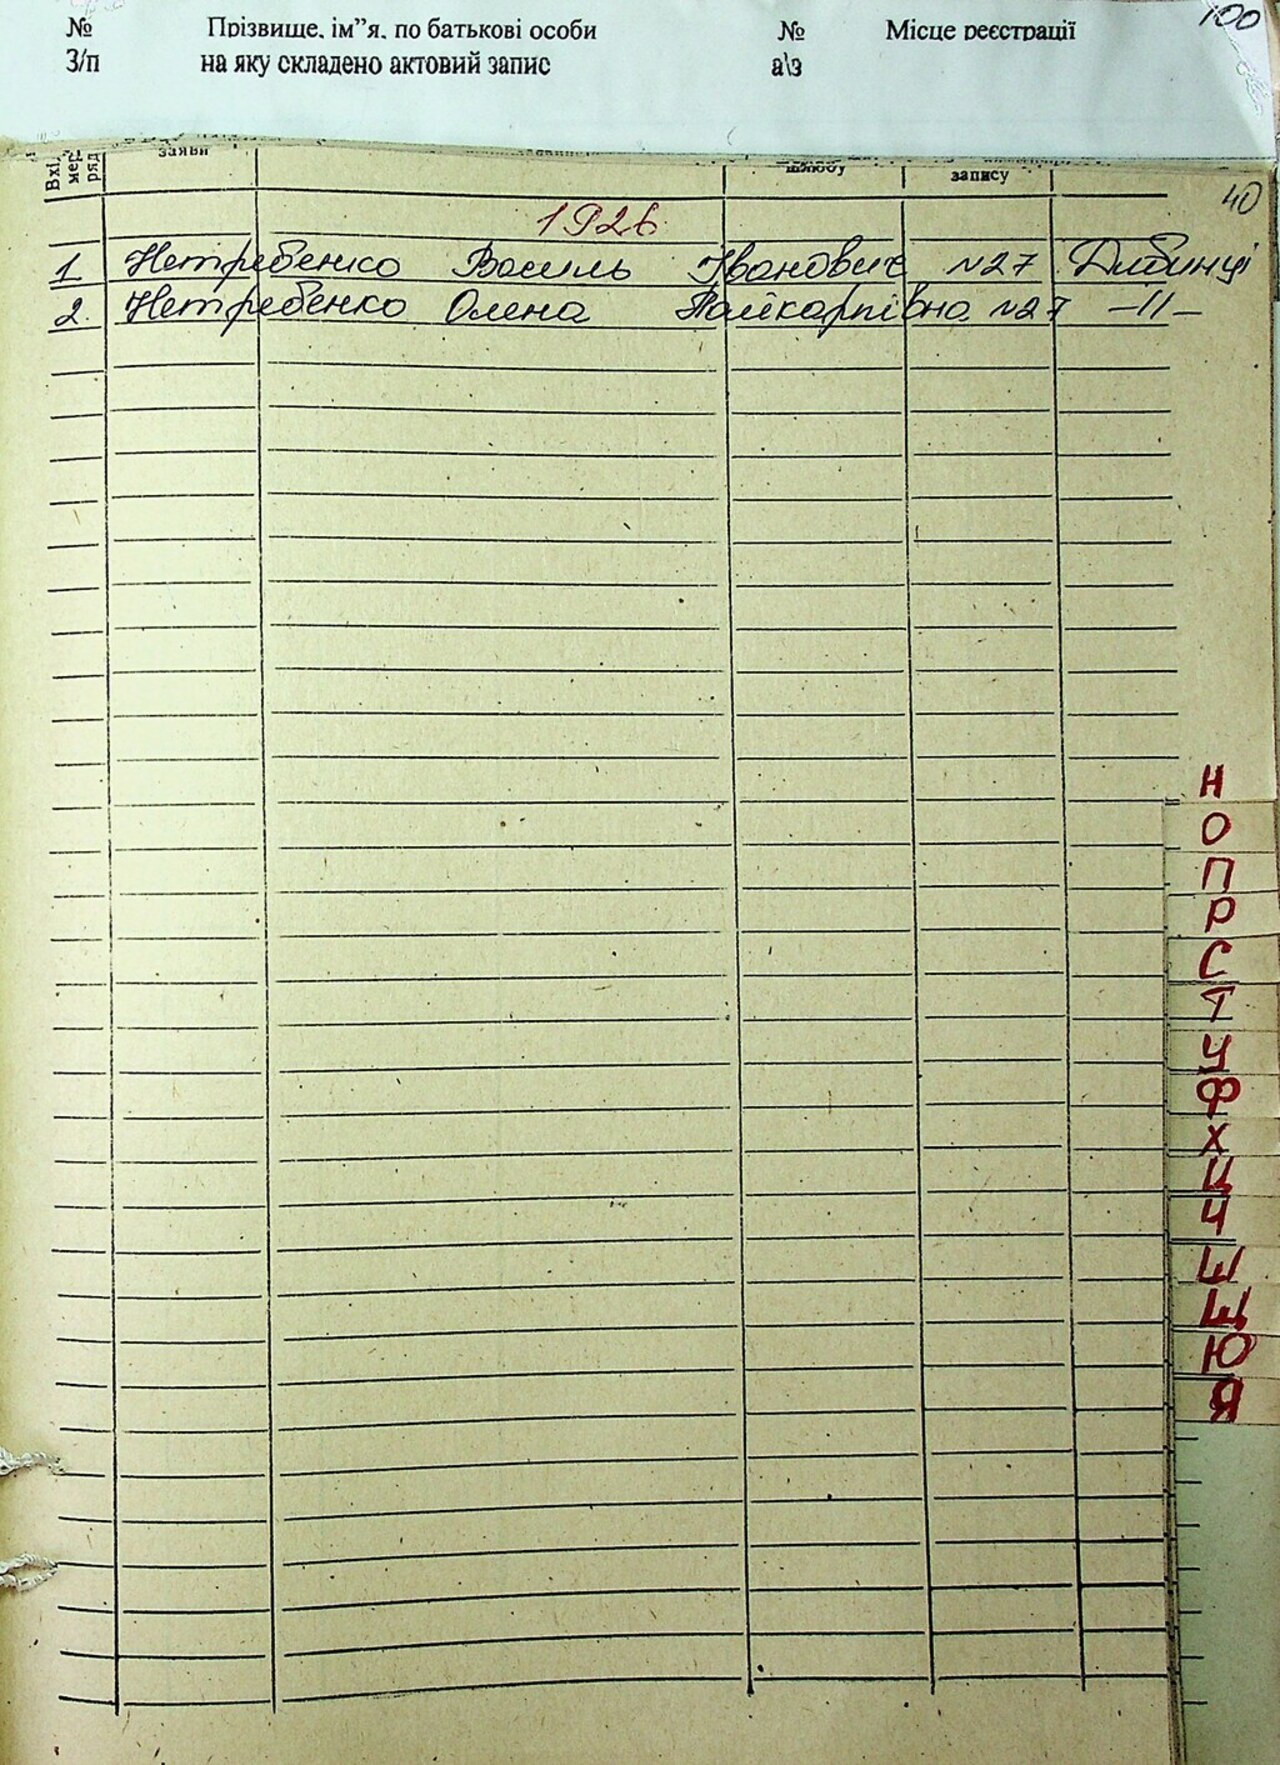 100
№ Прізвище, ім"я, по батькові особи № Місце реєстрації
З/п на яку складено актовий запис а\з
Вхі. мер ряд заяви шлюбу запису
40
1926
1 Нетребенко Василь Іванович №27 Дибинці
2. Нетребенко Олена Палікарпівна №27 -ІІ-
Н
О
П
Р
С
Т
У
Ф
Х
Ц
Ч
Ш
Щ
Ю
Я